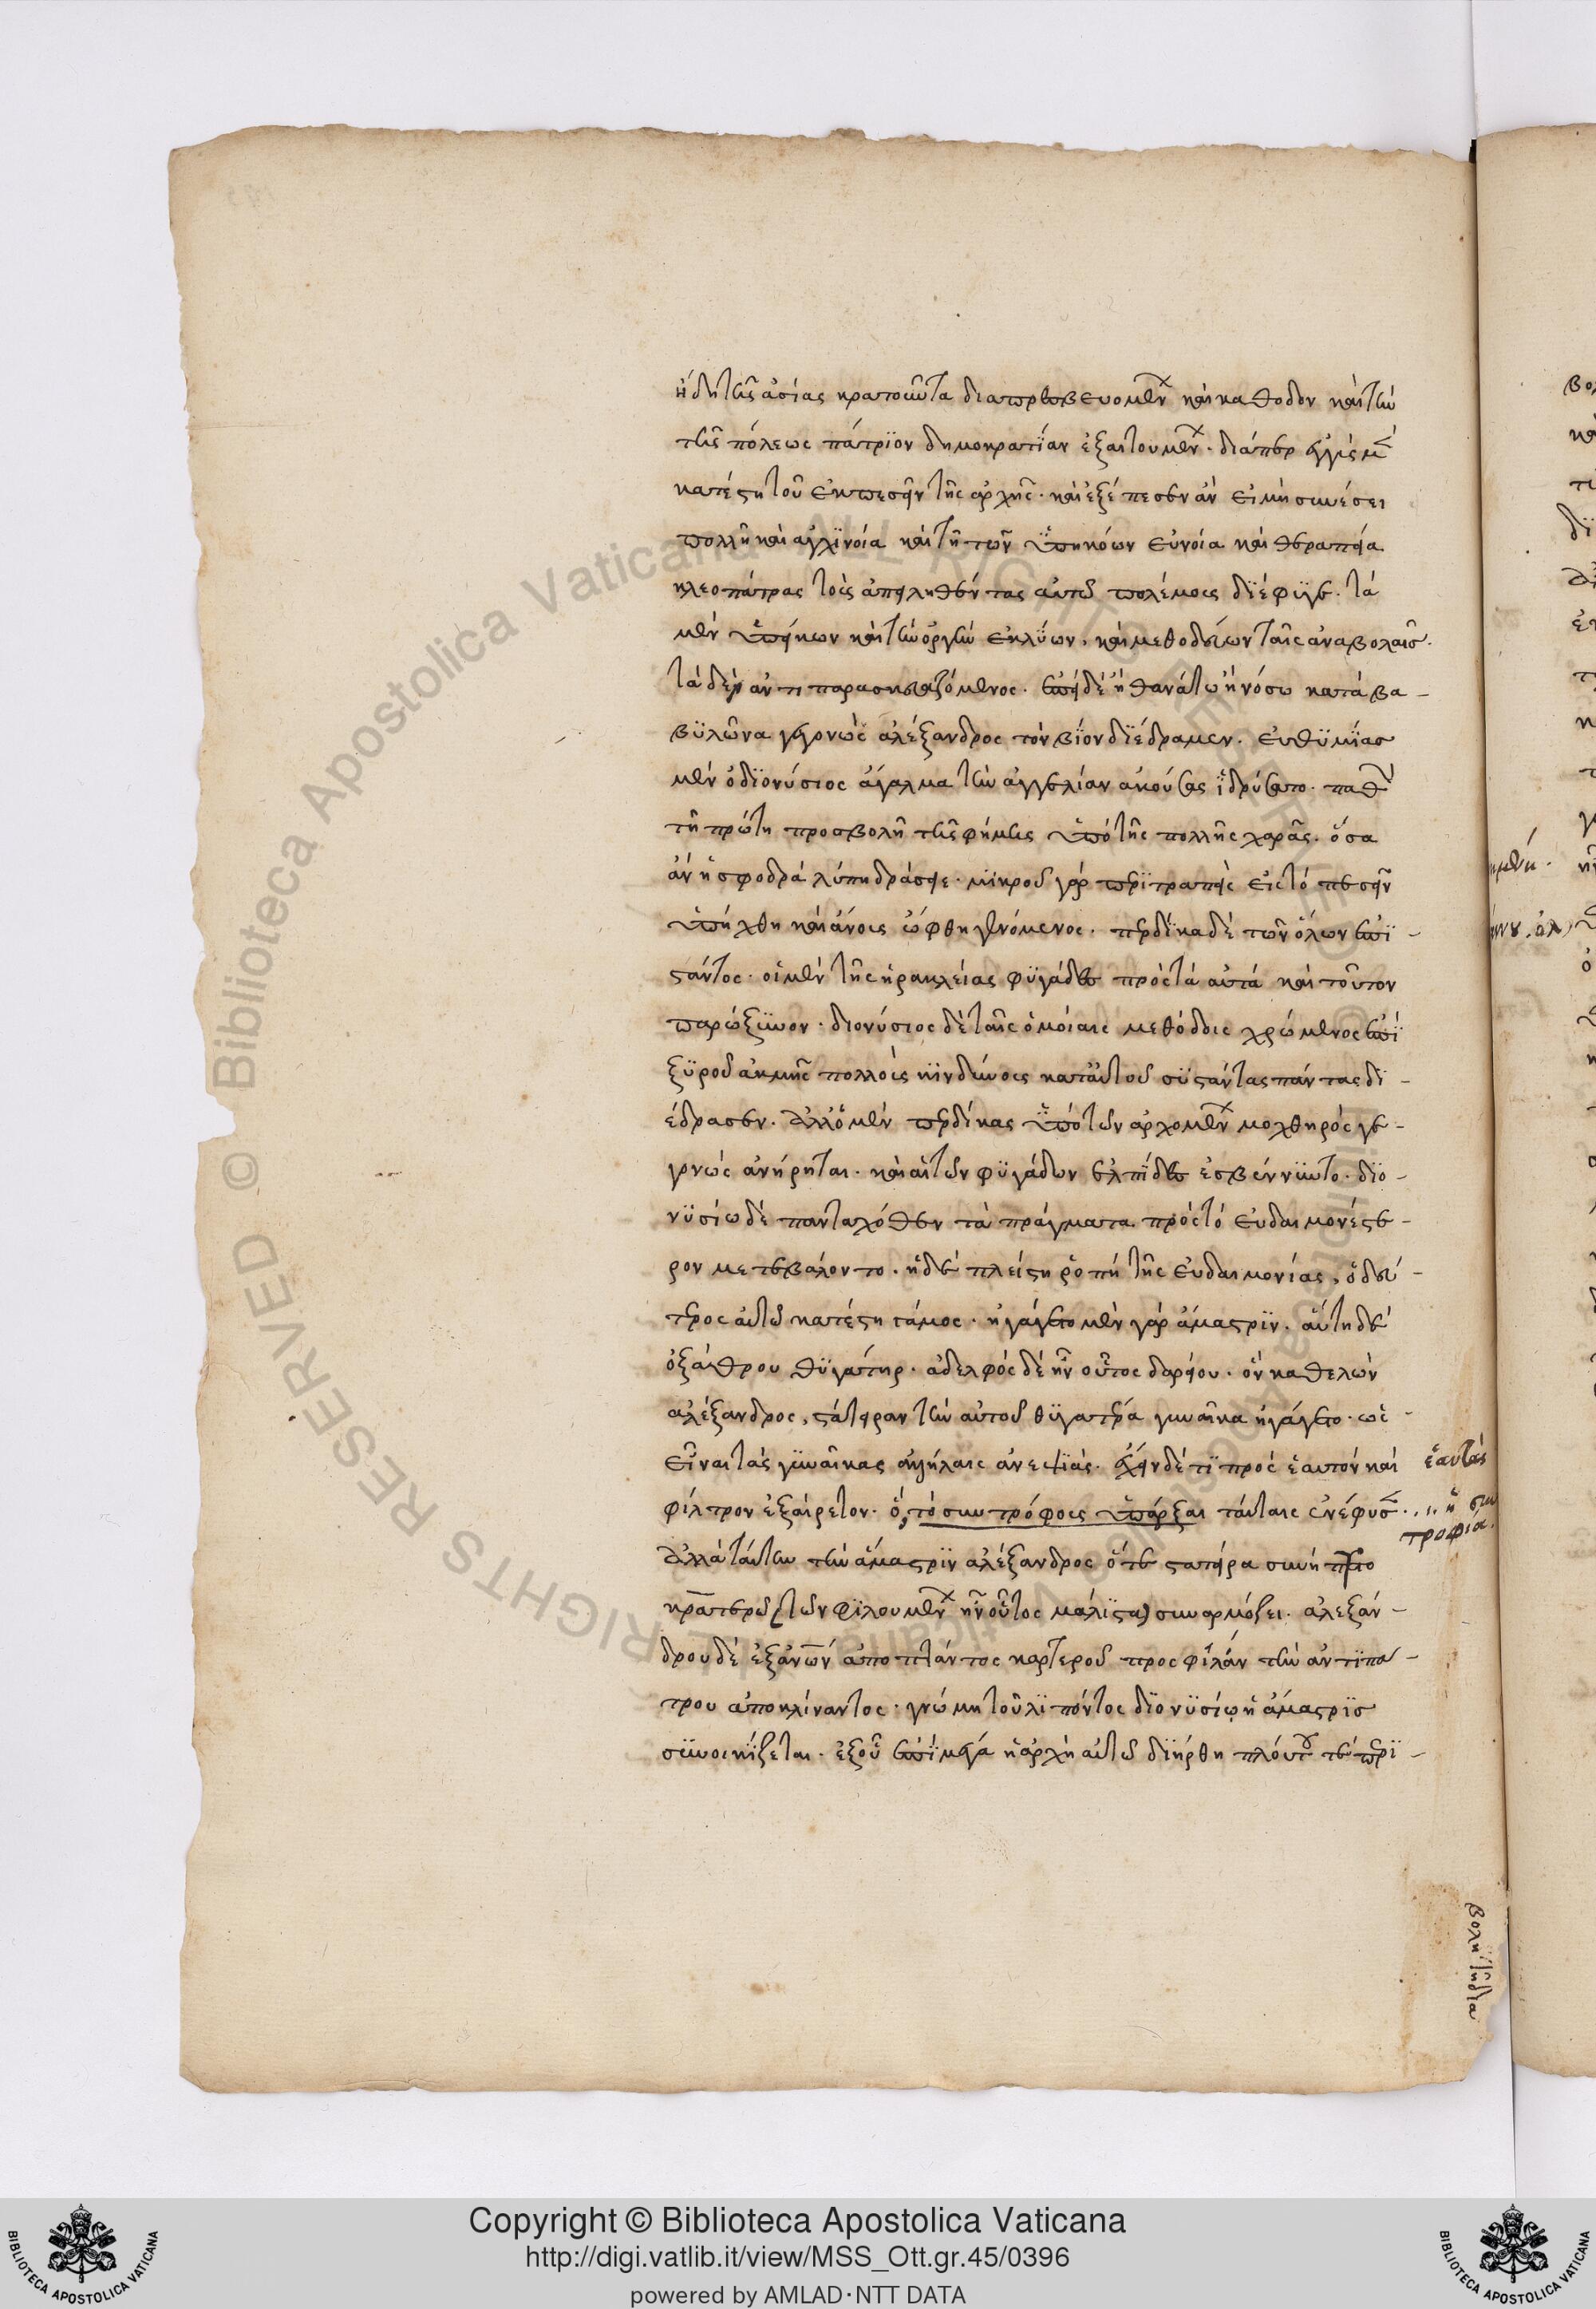 ἤδη τῆς ἀσίας κρατοῦντα διαπρεσβευομένων καὶ κάθοδον καὶ τὴν
τῆς πόλεως πάτριον δημοκρατίαν ἐξαιτουμένων. διάπερ ἐγγὺς μὲν
κατέστη τοῦ ἐκπεσεῖν τῆς ἀρχῆς. καὶ ἐξέπεσεν ἂν εἰ μὴ συνέσει
πολλῇ καὶ ἀγχινοία καὶ τῇ τῶν ὑπηκόων εὐνοία καὶ θεραπεία
κλεοπάτρας τοὺς ἀπειληθέντας αὐτῶ πολέμους διέφυγε. τὰ
μὲν ὑπείκων καὶ τὴν ὀργὴν ἐκλύων, καὶ μεθοδεύων ταῖς ἀναβολαῖς.
τὰ δὲ ἀντιπαρασκευαζόμενος. ἐπεὶ δὲ ἢ θανάτω ἢ νόσω κατὰ βα-
βυλῶνα γεγονὼς ἀλέξανδρος τὸν βίον διέδραμεν. εὐθυμίας
μὲν ὁ διονύσιος ἄγαλμα τὴν ἀγγελίαν ἀκούσας ἱδρύσατο. παθὼν
τῇ πρώτη προσβολῇ τῆς φήμης ὑπὸ τῆς πολλῆς χαρᾶς. ὅσα
ἂν ἡ σφοδρὰ λύπη δράσειε. μικροῦ γὰρ περιτραπεὶς εἰς τὸ πεσεῖν
ὑπήχθη καὶ ἄνους ὤφθη γενόμενος. περδίκα δὲ τῶν ὅλων ἐπι-
στάντος. οἱ μὲν τῆς ἡρακλείας φυγάδες πρὸς τὰ αὐτὰ καὶ τοῦτον
παρώξυνον. διονύσιος δὲ ταῖς ὁμοίαις μεθόδοις χρώμενος ἐπὶ
ξυροῦ ἀκμῆς πολλοὺς κινδύνους κατ' αὐτοῦ συστάντας πάντας δι-
έδρασεν. ἀλλ' ὁ μὲν περδίκας ὑπὸ τῶν ἀρχομένων μοχθηρὸς γε-
γονὼς ἀνήρηται. καὶ αἱ τῶν φυγάδων ἐλπίδες ἐσβέννυντο. διο-
νυσίω δὲ πανταχόθεν τὰ πράγματα πρὸς τὸ εὐδαιμονέστε-
ρον μετεβάλοντο. ἡ δὲ πλείστη ῥοπὴ τῆς εὐδαιμονίας, ὁ δεύ-
τερος αὐτῶ κατέστη γάμος. ἠγάγετο μὲν γὰρ ἄμαστριν. αὕτη δὲ
ὀξάθρου θυγάτηρ. ἀδελφὸς δὲ ἦν οὗτος δαρείου. ὃν καθελὼν
ἀλέξανδρος, στάτειραν τὴν αὐτοῦ θυγατέρα γυναῖκα ἠγάγετο. ὡς
εἶναι τὰς γυναῖκας ἀλλήλαις ἀνεψιάς. ἔχειν δέ τι πρὸς ἑαυτὸν καὶ ἑαυτὰς
φίλτρον ἐξαίρετον. ὅ, τὸ συντρόφοις ὑπάρξαι ταύταις ἐνέφυσεν. ... ἢ συν
τροφία.
ἀλλὰ ταύτην τὴν ἄμαστριν ἀλέξανδρος ὅτε στατείρα συνήπτετο
κρατερῶ (τῶν φιλουμένων ἦν οὗτος μάλιστα) συναρμόζει. ἀλεξάν-
δρου δὲ ἐξ ἀνθρώπων ἀποπτάντος καρτεροῦ πρὸς φίλαν τὴν ἀντιπά-
τρου ἀποκλίναντος. γνώμη τοῦ λιπόντος διονυσίῳ ἡ ἄμαστρις
συνοικίζεται. ἐξ οὗ ἐπὶ μέγα ἡ ἀρχὴ αὐτῶ διήρθη πλούτου τε περι-
βολῇ τῇ δια